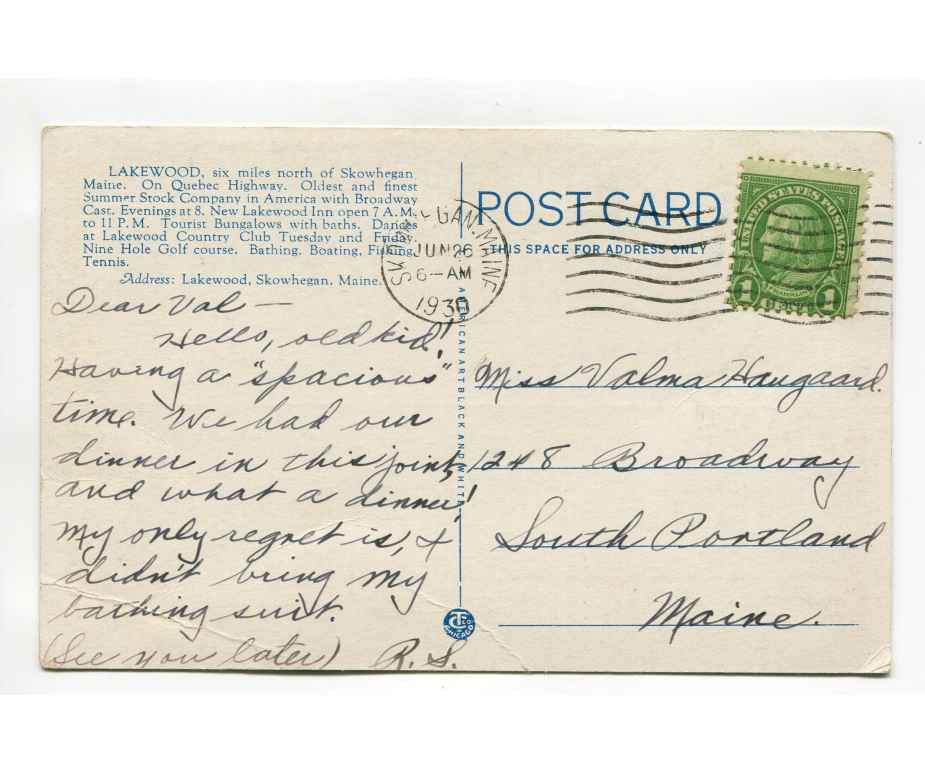 LAKEWOOD, six miles north of Skowhegan
Maine. On Quebec Highway. Oldest and finest
Summer Stock Company in America with Broadway
Cast. Evenings at 8. New Lakewood Inn open 7 A.M.
to 11 P.M. Tourist Bungalows with baths. Dances
at Lakewood Country Club Tuesday and Friday.
Nine Hole Golf course. Bathing. Boating, Fishing,
Tennis.
Address: Lakewood, Skowhegan, Maine.
Dear Val —
Hello, old kid!
Having a "spacious"
time. We had our
dinner in this joint,
and what a dinner!
My only regret is, I
didn't bring my
bathing suit.
(See you later) R.S.
AMERICAN ART BLACK AND WHITE
CT CO
CHICAGO
POST CARD
THIS SPACE FOR ADDRESS ONLY
SKOWHEGAN. MAINE
JUN 26
6–AM
1930
UNITED STATES POSTAGE
1 CENT 1
Miss Valma Haugaard.
1248 Broadway
South Portland
Maine.